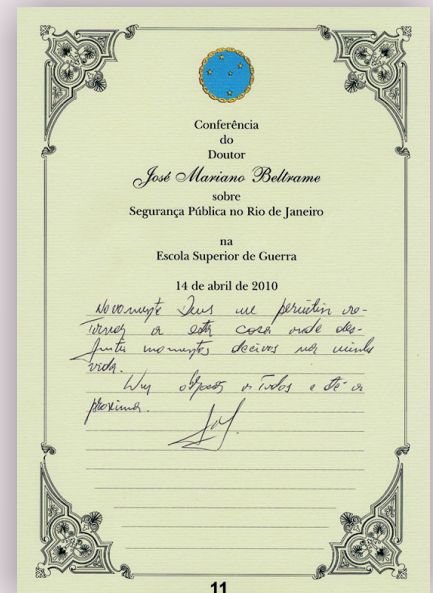 Conferência
do
Doutor
José Mariano Beltrame
sobre
Segurança Pública no Rio de Janeiro
na
Escola Superior de Guerra
14 de abril de 2010
Novamente Deus me permitiu re-
tornar a esta casa onde des-
frutei momentos na minha
vida.
Um a todos e até a
próxima.
11